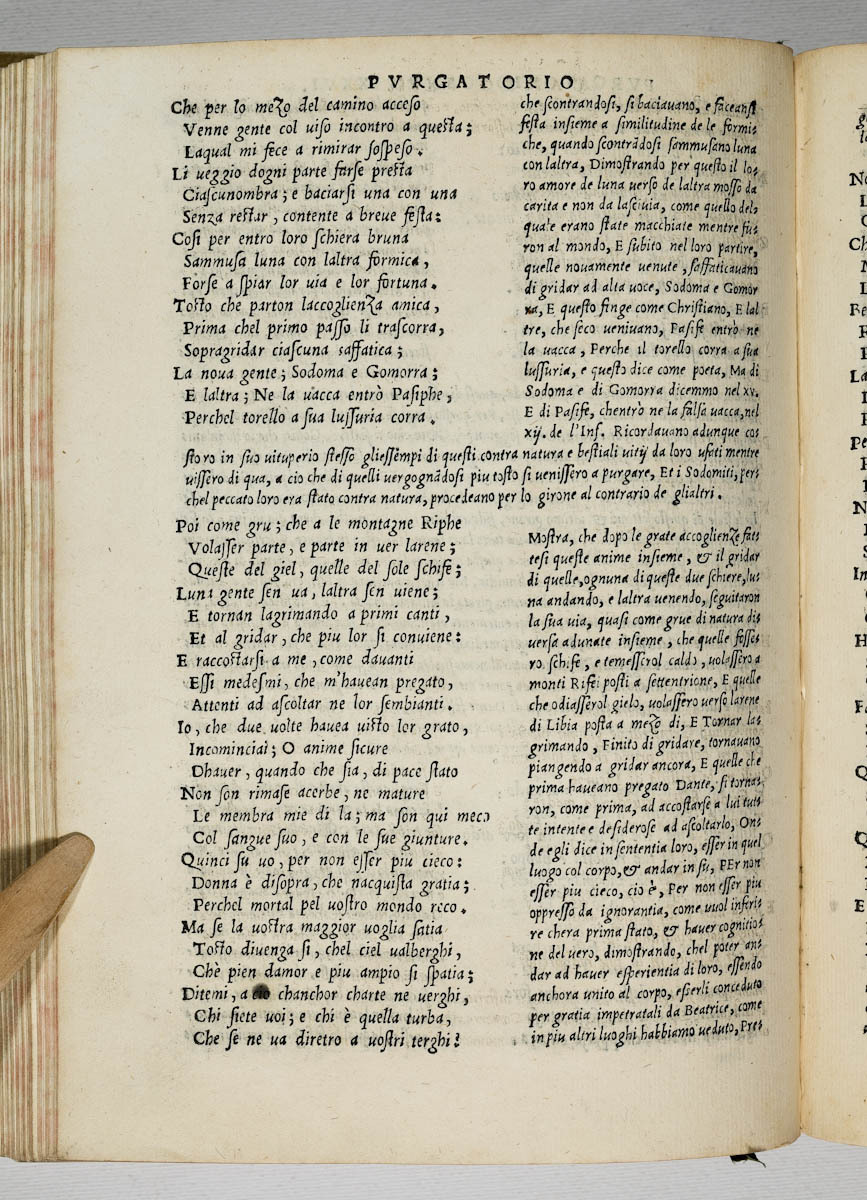 PVRGATORIO
Che per lo mezo del camino acceso
Venne gente col uiso incontro a questa;
Laqual mi fece a rimirar sospeso.
Li ueggio dogni parte farse presta
Ciascunombra; e baciarsi una con una
Senza restar, contente a breue festa:
Cosi per entro loro schiera bruna
Sammusa luna con laltra formica,
Forse a spiar lor uia e lor fortuna.
Tosto che parton laccoglienza amica,
Prima chel primo passo li trascorra,
Sopragridar ciascuna saffatica;
La noua gente; Sodoma e Gomorra;
E laltra; Ne la uacca entrò Pasiphe,
Perchel torello a sua lussuria corra.
che scontrandosi, si baciauano, e faceansi
festa insieme a similitudine de le formi-
che, quando scontrãdosi sammusano luna
con laltra, Dimostrando per questo il lo-
ro amore de luna uerso de laltra mosso da
carita e non da lasciuia, come quello dela
quale erano state macchiate mentre fu-
ron al mondo, E subito nel loro partire,
quelle nouamente uenute, saffaticauano
di gridar ad alta uoce, Sodoma e Gomor
ra, E questo finge come Christiano, E lal
tre, che seco ueniuano, Pasife entrò ne
la uacca, Perche il torello corra a sua
lussuria, e questo dice come poeta, Ma di
Sodoma e di Gomorra dicemmo nel xv.
E di Pasife, chentrò ne la falsa uacca, nel
xij. de l'Inf. Ricordauano adunque co-
storo in suo uituperio stesso gliessempi di questi contra natura e bestiali uitij da loro usati mentre
uissero di qua, a cio che di quelli uergognãdosi piu tosto si uenissero a purgare, Et i Sodomiti, per-
chel peccato loro era stato contra natura, procedeano per lo girone al contrario de glialtri.
Poi come gru; che a le montagne Riphe
Volasser parte, e parte in uer larene;
Queste del giel, quelle del sole schife;
Luna gente sen ua, laltra sen uiene;
E tornan lagrimando a primi canti,
Et al gridar, che piu lor si conuiene:
E raccostarsi a me, come dauanti
Essi medesmi, che m'hauean pregato,
Attenti ad ascoltar ne lor sembianti.
Io, che due uolte hauea uisto lor grato,
Incominciai; O anime sicure
Dhauer, quando che sia, di pace stato
Non son rimase acerbe, ne mature
Le membra mie di la; ma son qui meco
Col sangue suo, e con le sue giunture.
Quinci su uo, per non esser piu cieco:
Donna è disopra, che nacquista gratia;
Perchel mortal pel uostro mondo reco.
Ma se la uostra maggior uoglia satia
Tosto diuenga si, chel ciel ualberghi,
Chè pien damor e piu ampio si spatia;
Ditemi, a cio chanchor charte ne uerghi,
Chi siete uoi; e chi è quella turba,
Che se ne ua diretro a uostri terghi?
Mostra, che dopo le grate accoglienze fat-
tesi queste anime insieme, & il gridar
di quelle, ognuna di queste due schiere, lu-
na andando, e laltra uenendo, seguitaron
la sua uia, quasi come grue di natura di-
uersa adunate insieme, che quelle fosse-
ro schife, e temesserol caldo, uolassero a
monti Rifei posti a settentrione, E quelle
che odiasserol gielo, uolassero uerso larene
di Libia posta a mezo di, E Tornar la-
grimando, Finito di gridare, tornauano
piangendo a gridar ancora, E quelle che
prima haueano pregato Dante, si torna-
ron, come prima, ad accostarse a lui tut-
te intente e desiderose ad ascoltarlo, On-
de egli dice in sententia loro, esser in quel
luogo col corpo, & andar in su, PEr non
esser piu cieco, cio è, Per non esser piu
oppresso da ignorantia, come uuol inferi-
re chera prima stato, & hauer cognitio-
ne del uero, dimostrando, chel poter an-
dar ad hauer esperientia di loro, essendo
anchora unito al corpo, esserli conceduto
per gratia impetratali da Beatrice, come
in piu altri luoghi habbiamo ueduto, Pre-